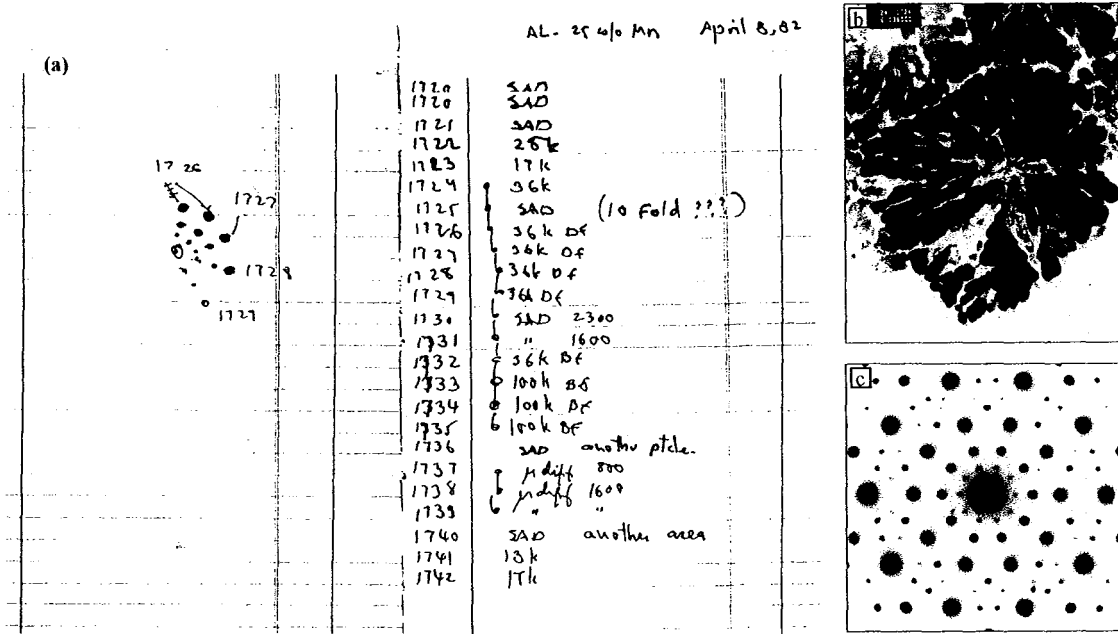 AL- 25 w/o Mn April 8, 82
(a)
1726
1727
1728
1729
1720 SAD
1720 SAD
1721 SAD
1722 25k
1723 17k
1724 36k
1725 SAD (10 Fold ???)
1726 36k DF
1727 36k DF
1728 36k DF
1729 36k DF
1730 SAD 2300
1731 " 1600
1732 36k BF
1733 100k BF
1734 100k BF
1735 100k BF
1736 SAD another ptcle.
1737 μdiff 800
1738 μdiff 1600
1739 " "
1740 SAD another area
1741 13k
1742 17k
b
c